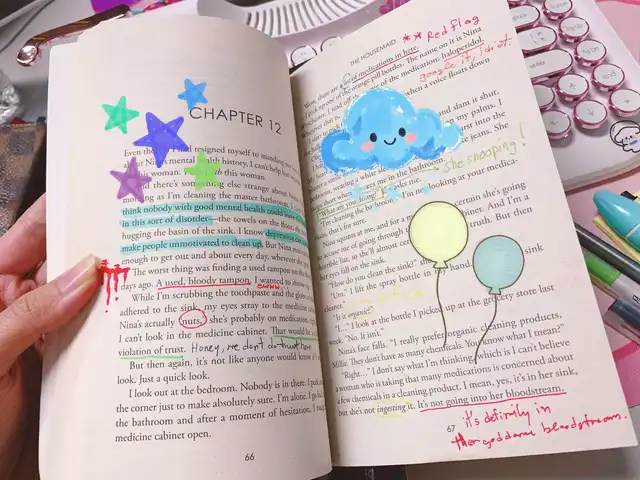 CHAPTER 12
resigned myself to minding my
about Nina's mental health history, I can't help
this woman.
there's something else strange about Nina's
morning as I'm cleaning the master bathroom, I
think nobody with good mental health could
in this sort of disorder—the towels on the floor, the
hugging the basin of the sink. I know depression can
make people unmotivated to clean up. But Nina
enough to get out and about every day, wherever
The worst thing was finding a used tampon on the
days ago. A used, bloody tampon. I wanted to
ewww.
While I'm scrubbing the toothpaste and the globs
adhered to the sink, my eyes stray to the medicine
Nina's actually nuts, she's probably on medication,
I can't look in the medicine cabinet. That would be
violation of trust. Honey, we don't do trust here
But then again, it's not like anyone would know if I
look. Just a quick look.
I look out at the bedroom. Nobody is in there. I
the corner just to make absolutely sure. I'm alone. I
the bathroom and after a moment of hesitation, I
medicine cabinet open.
66
THE HOUSEMAID
** Red flag
Wow, there are a of medications in here.
up one of the orange pill bottles. The name on it is Nina
of the medication: haloperidol.
google it, idiot.
when a voice floats down
and slam it shut.
in my palms. I
burst into the
jeans. She
wearing a white
short when she sees me in the bathroom.
she snooping!
"What are you doing?" she asks me.
I'm cleaning the bathroom. I'm not looking at your medica-
Nina squints at me, and for a certain she's going
to accuse me of going through cabinet. And I'm a
terrible liar, so she'll almost truth. But then
her eyes fall on the sink.
"How do you clean the sink?" she
"Um." I lift the spray bottle in my hand sink
cleaner."
"Is it organic?"
"I…" I look at the bottle I picked up at the grocery store last
week. "No. It isn't."
Nina's face falls. "I really prefer organic cleaning products,
Millie. They don't have as many chemicals. You know what I mean?"
"Right…" I don't say what I'm thinking, which is I can't believe
a woman who is taking that many medications is concerned about
a few chemicals in a cleaning product. I mean, yes, it's in her sink,
but she's not ingesting it. It's not going into her bloodstream.
67
it's definitly in
ther goddamn bloodstream.